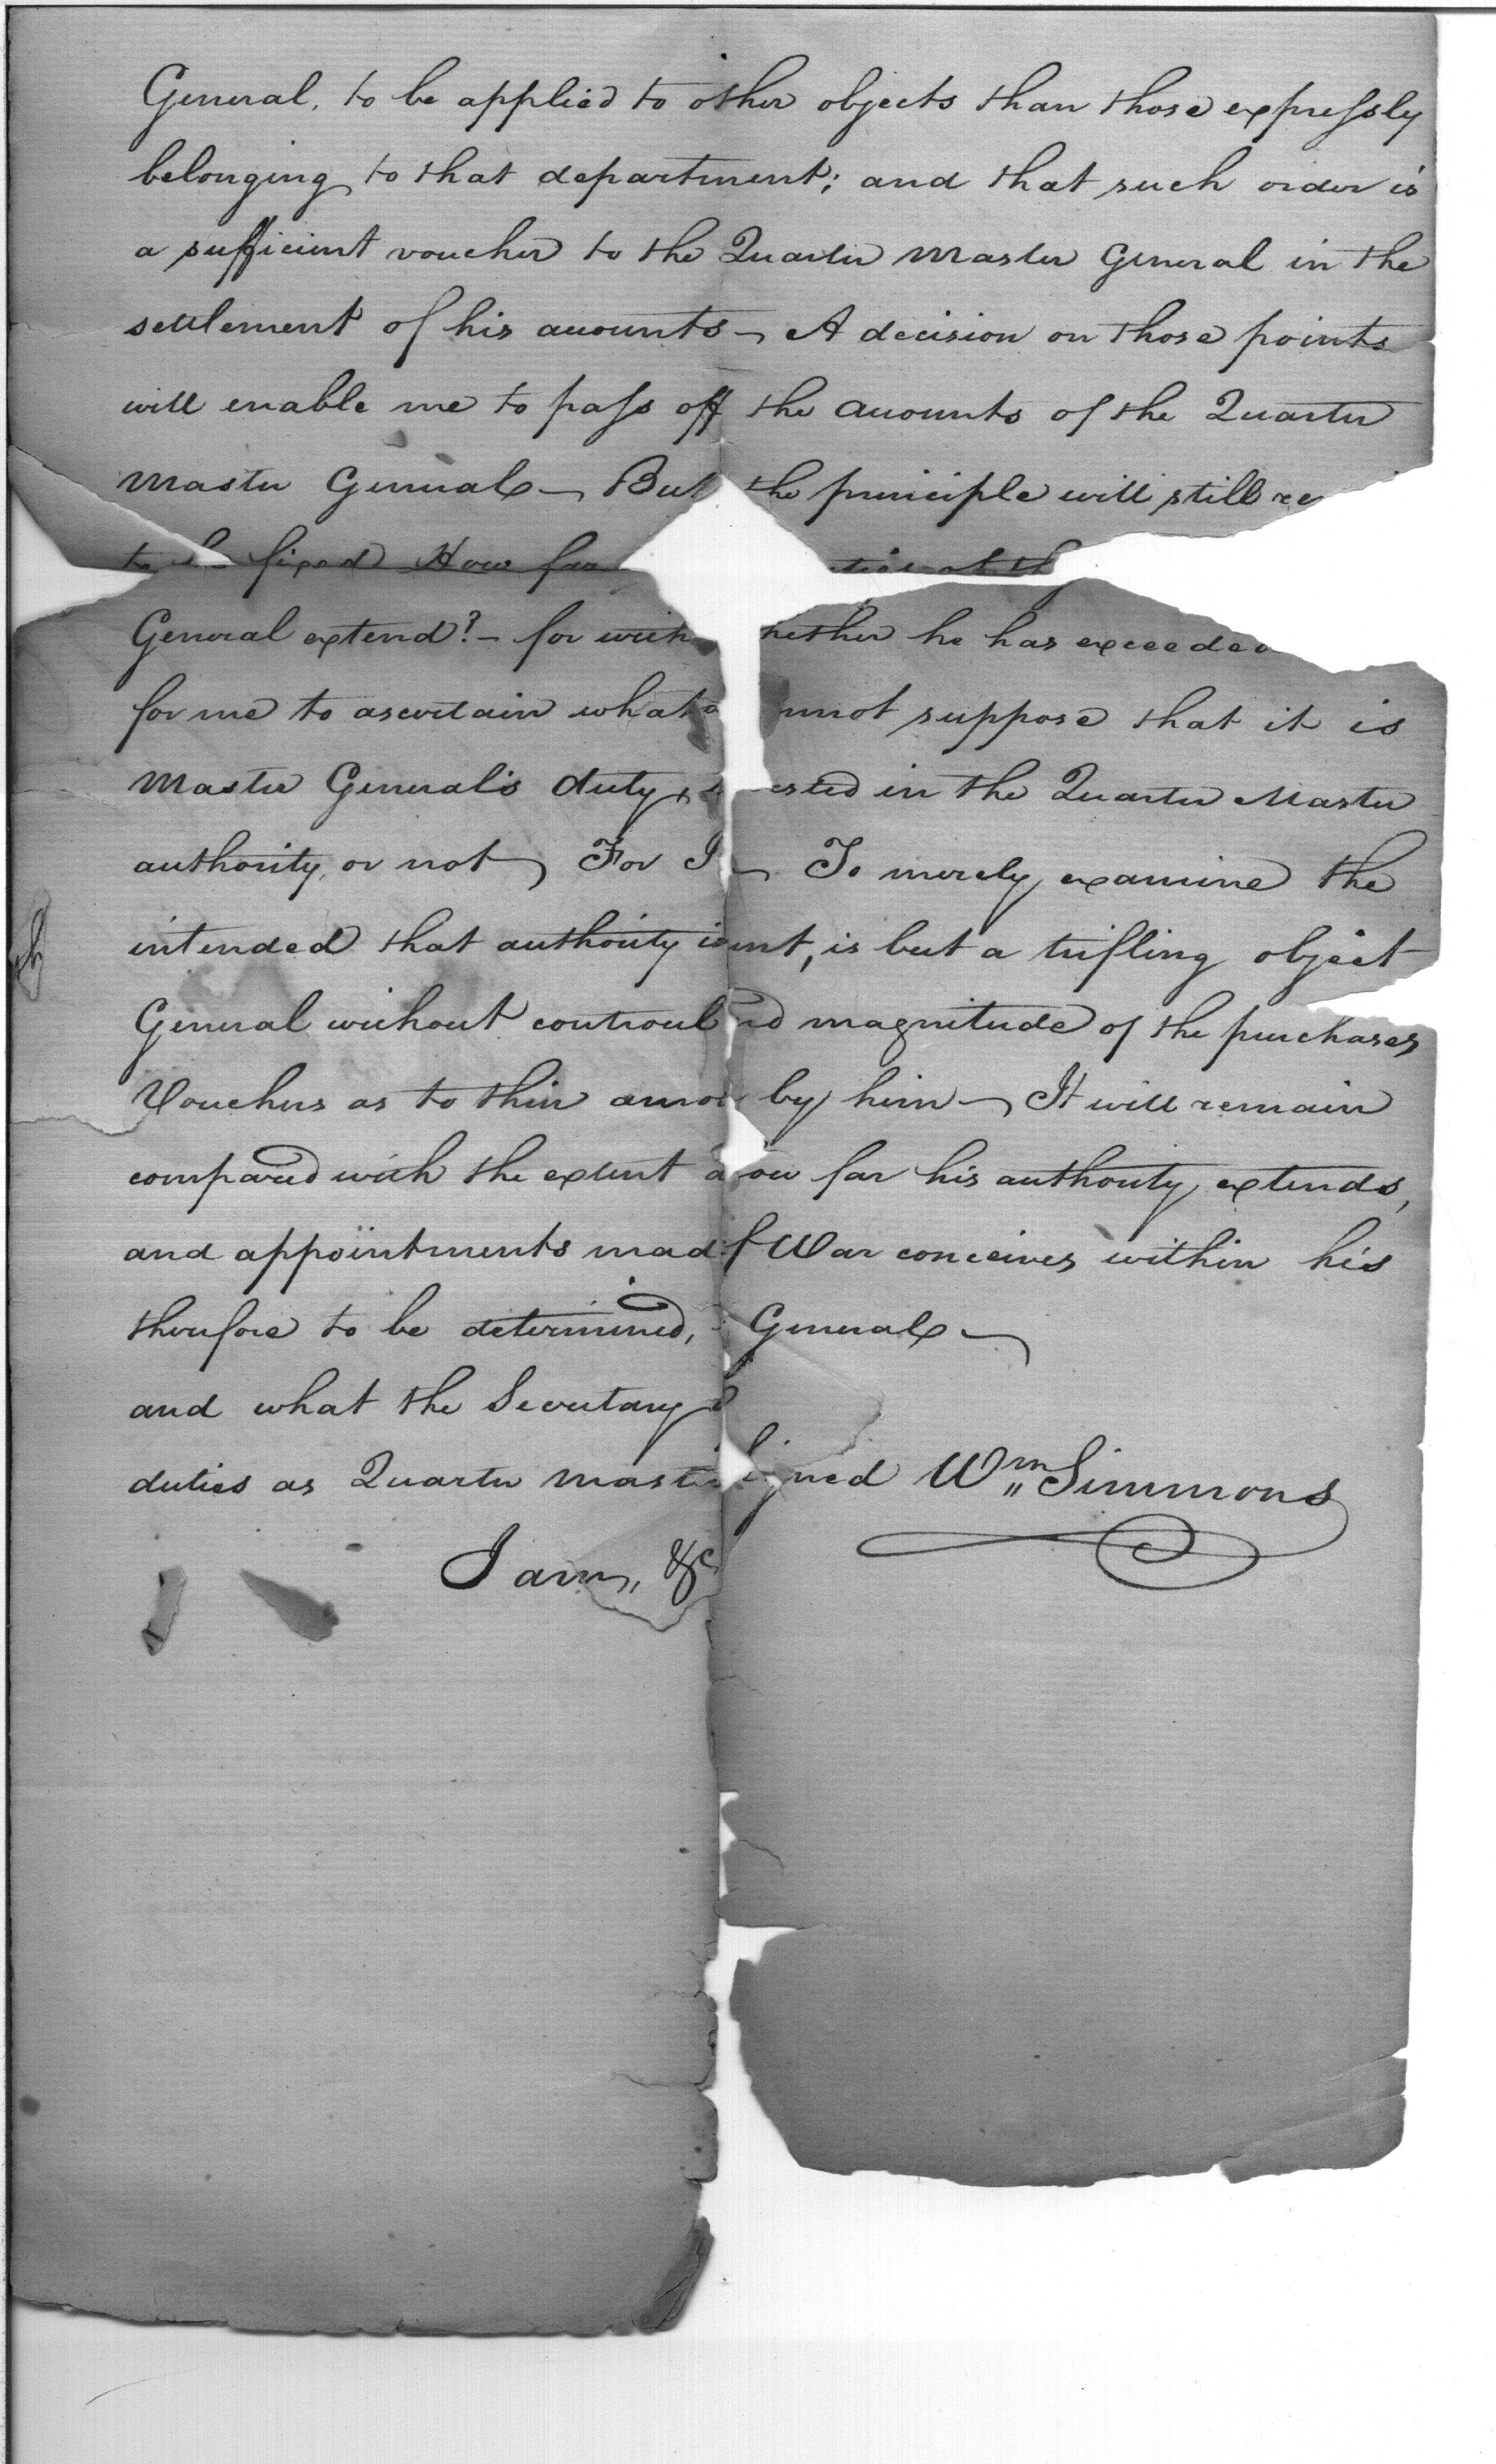 General, to be applied to other objects than those expressly
belonging to that department; and that such order is
a sufficient voucher to the Quarter Master General in the
settlement of his accounts – A decision on those points
will enable me to pass off the accounts of the Quarter
Master General – But the principle will still re
to be fixed How far
General extend? – for with hether he has exceeded
for me to ascertain what nnot suppose that it is
Master General's duty ested in the Quarter Master
authority, or not – For I – To merely examine the
intended that authority i unt, is but a trifling object
General without controul nd magnitude of the purchases
Vouchers as to their amo by him – It will remain
compared with the extent a ow far his authority extends,
and appointments mad f War conceives within his
therefore to be determined, General –
and what the Secretary
duties as Quarter Maste igned Wm Simmons
I am, &c